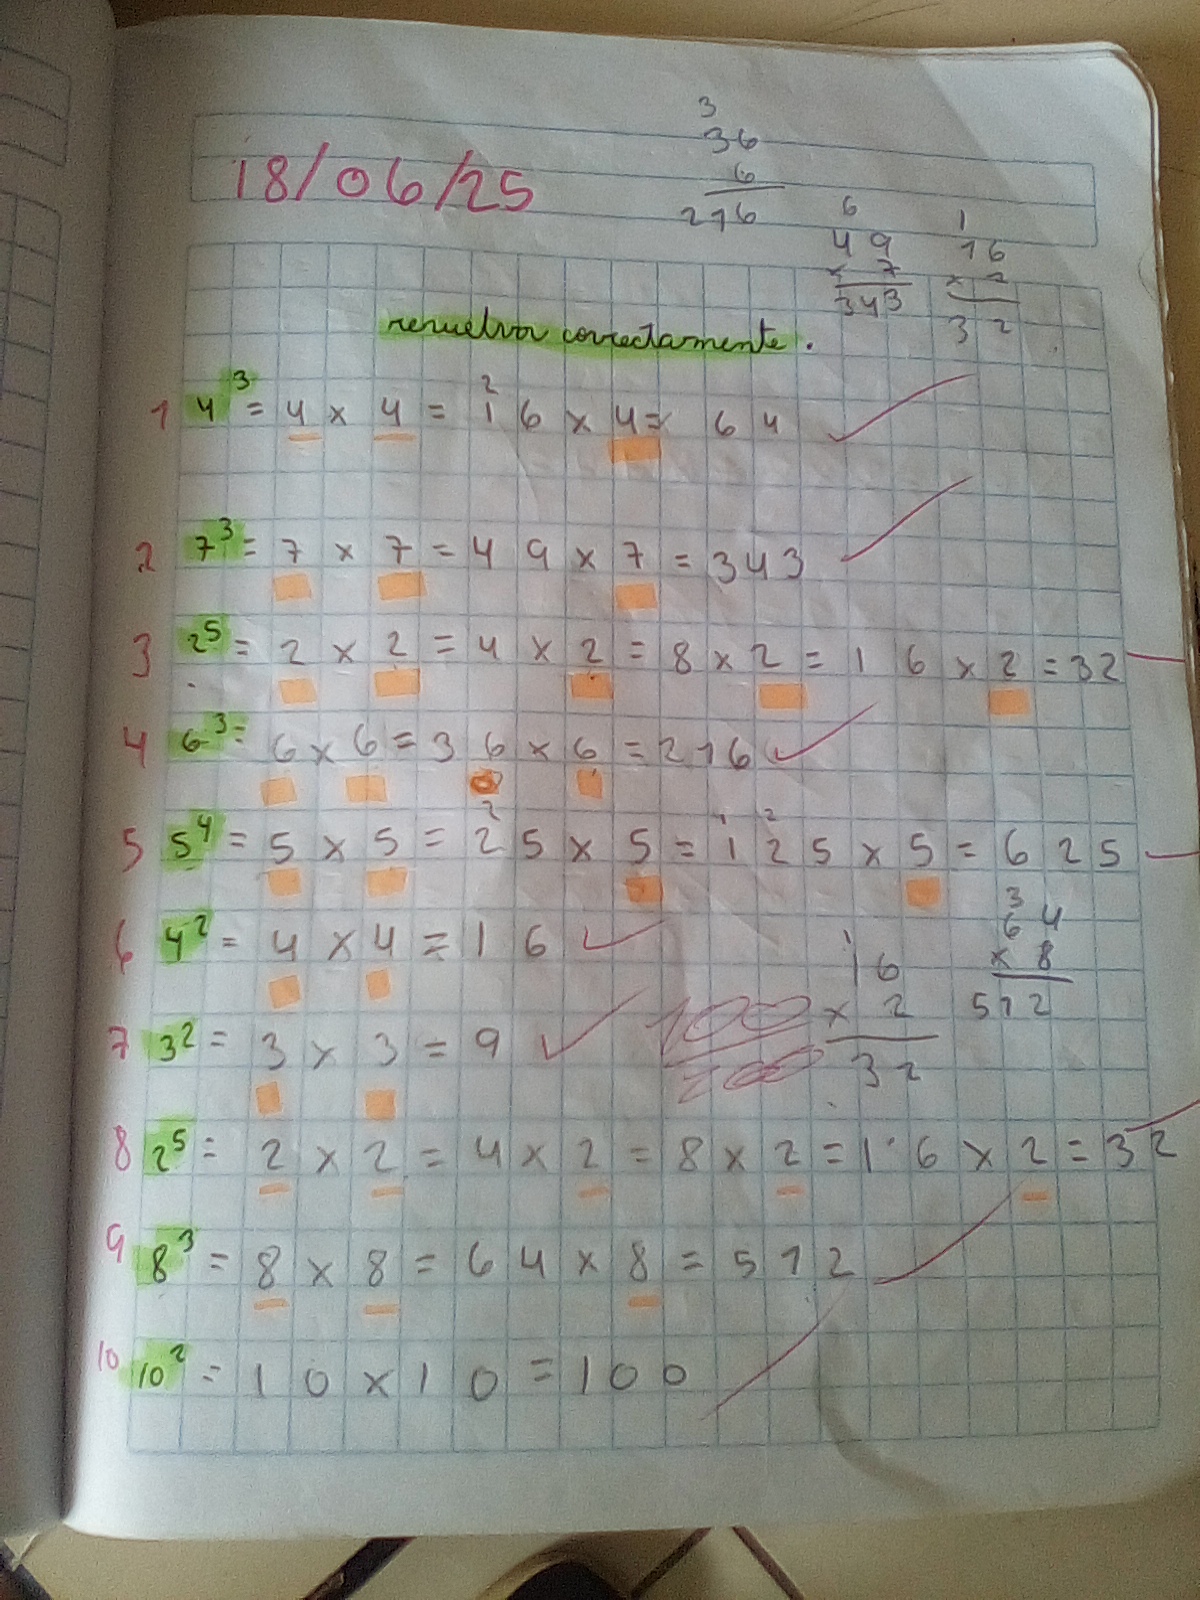 3
36
6
216
18/06/25
6
49
× 7
343
1
16
× 2
32
resuelva correctamente.
1 4³ = 4 × 4 = 16 × 4 = 64
2 7³ = 7 × 7 = 49 × 7 = 343
3 2⁵ = 2 × 2 = 4 × 2 = 8 × 2 = 16 × 2 = 32
4 6³ = 6 × 6 = 36 × 6 = 216
5 5⁴ = 5 × 5 = 25 × 5 = 125 × 5 = 625
6 4² = 4 × 4 = 16
1
16
× 2
32
3
64
× 8
512
7 3² = 3 × 3 = 9
100
100
8 2⁵ = 2 × 2 = 4 × 2 = 8 × 2 = 16 × 2 = 32
9 8³ = 8 × 8 = 64 × 8 = 512
10 10² = 10 × 10 = 100